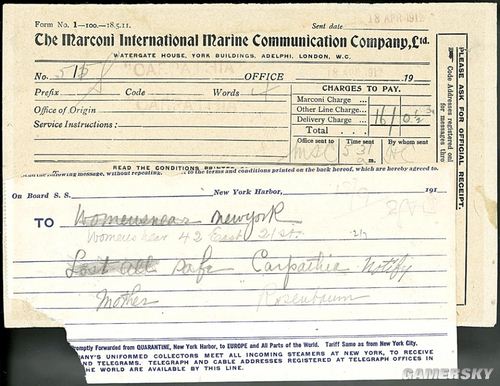 Form No. 1—100.—18.5.11. Sent date 18 APR 1912
The Marconi International Marine Communication Company, Ltd.
WATERGATE HOUSE, YORK BUILDINGS, ADELPHI, LONDON, W.C.
No. OFFICE 19
Prefix Code Words
CHARGES TO PAY.
Office of Origin
Marconi Charge ...
Other Line Charge ...
Service Instructions:
Delivery Charge ...
Total ...
Office sent to Time sent By whom sent
MSC
READ THE CONDITIONS
following message, without repeating, to the terms and conditions printed on the back hereof, which are hereby agreed to.
PLEASE ASK FOR OFFICIAL RECEIPT.
Code Addresses registered only
for messages thro
On Board S. S. New York Harbor, 191
TO Womenswear Newyork
Womens wear 42 East 21 st.
Lost all Safe Carpathia Notify
Mother Rosenbaum
omptly Forwarded from QUARANTINE, New York Harbor, to EUROPE and All Parts of the World. Tariff Same as from New York City.
ANY'S UNIFORMED COLLECTORS MEET ALL INCOMING STEAMERS AT NEW YORK, TO RECEIVE
AND TELEGRAMS. TELEGRAPH AND CABLE ADDRESSES REGISTERED AT TELEGRAPH OFFICES IN
THE WORLD ARE AVAILABLE BY THIS LINE.
GAMERSKY